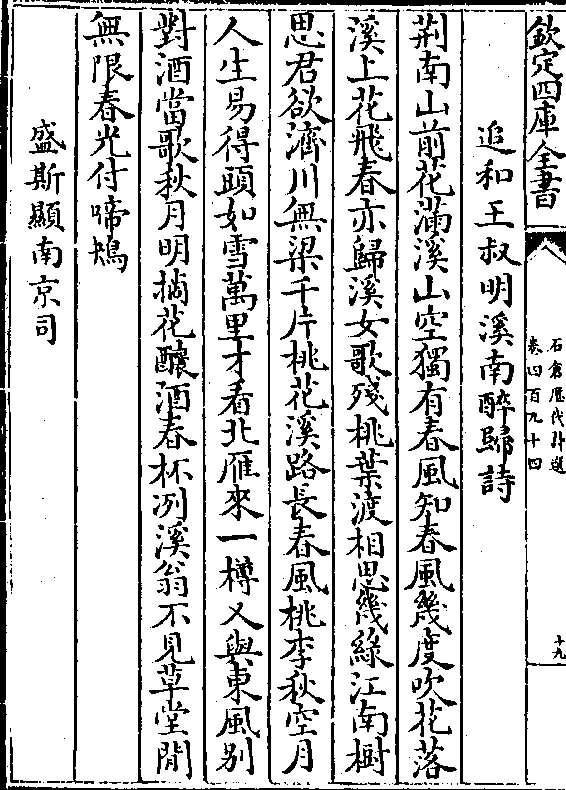 欽定四庫全書
石倉歷代詩選
卷四百九十四
十九
追和王叔明溪南醉歸詩
荆南山前花滿溪山空獨有春風知春風幾度吹花落
溪上花飛春亦歸溪女歌殘桃葉渡相思幾綠江南樹
思君欲濟川無梁千片桃花溪路長春風桃李秋空月
人生易得頭如雪萬里才看北雁來一樽又與東風别
對酒當歌秋月明摘花釀酒春杯冽溪翁不見草堂閒
無限春光付啼鴂
盛斯顯南京司